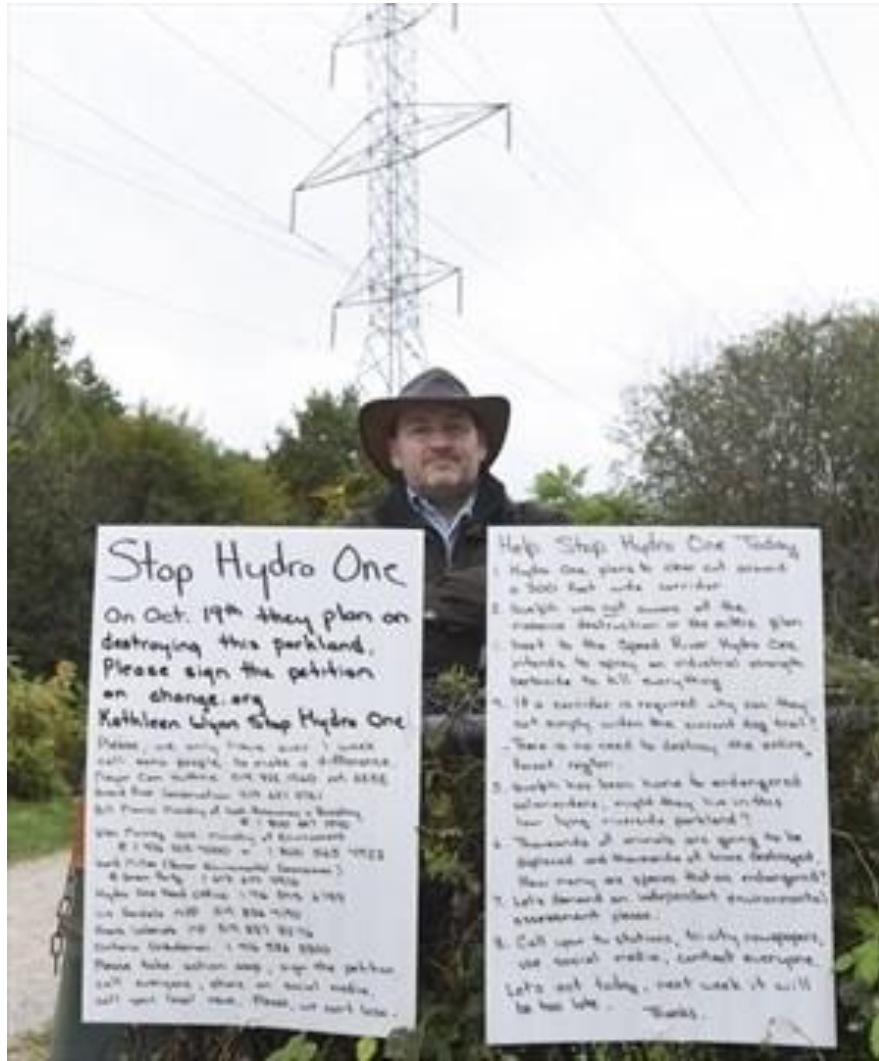 Stop Hydro One
On Oct. 19th they plan on
destroying this parkland.
Please sign the petition
on change.org
Kathleen Wynn Stop Hydro One
Please, we only have over 1 week
call some people, to make a difference.
Mayor Cam Guthrie 519
Grand River Conservation 519
Ministry of
Glen Murray Ministry of Environment
Hydro One Head Office 1 416
Liz Sandals MPP 519
Frank Valeriote MP 519
Ontario Ombudsman 1 416 586 3300
Please take action asap, sign the petition
call everyone, share on social media,
call your local news. Please, we can't lose.
Help Stop Hydro One Today
1. Hydro One plans to clear cut around
a 300 foot wide corridor
2. Guelph was not aware of the
massive destruction or the entire plan
Next to the Speed River Hydro One
intends to spray an industrial strength
herbicide to kill everything
4. If a corridor is required why can they
not simply widen the current dog trail?
- There is no need to destroy the entire
forest region.
5. Guelph has been home to endangered
salamanders, might they live in this
low lying riverside parkland?
6. Thousands of animals are going to be
displaced and thousands of homes destroyed.
How many are species that are endangered?
7. Let's demand an independent environmental
assessment please.
8. Call upon tv stations, tri-city newspapers,
use social media, contact everyone.
Let's act today, next week it will
be too late.
Thanks.